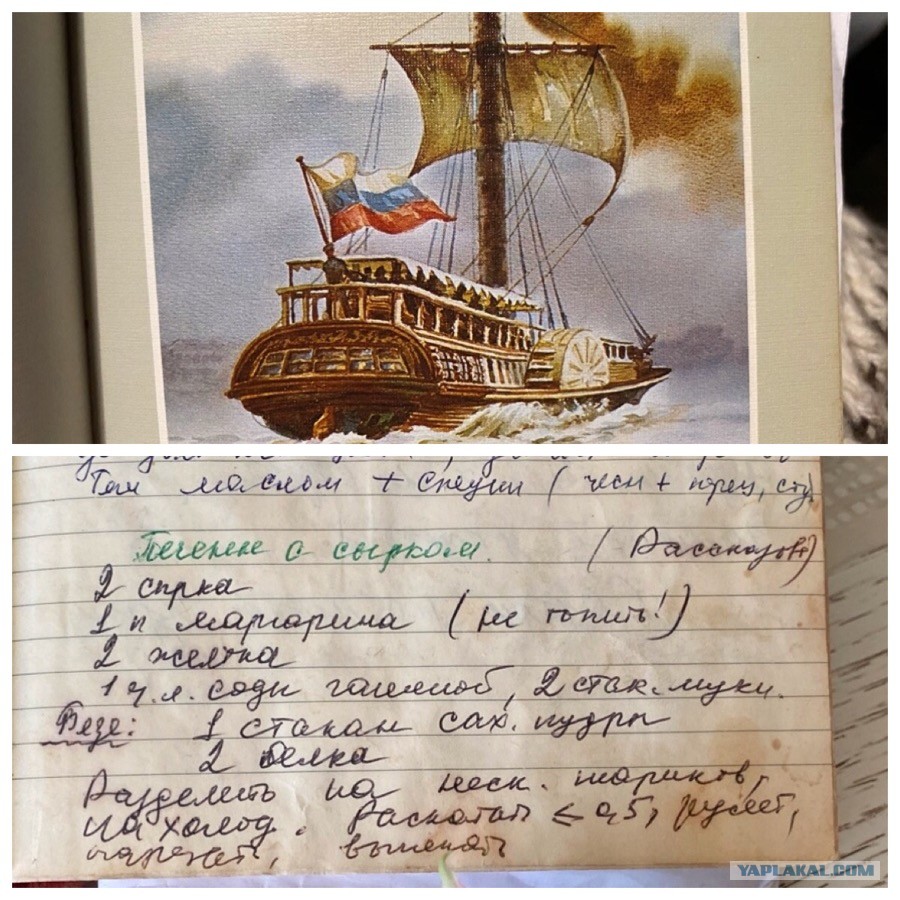 Там маслом + специи ( чесн + перец, сту
Печенье с сырком. ( Рассказов
2 сырка
1 п маргарина ( не топить! )
2 желтка
1 ч.л. соды гашеной, 2 стак. муки.
Безе: 1 стакан сах. пудры
2 белка
Разделить на неск. шариков,
на холод. Раскатать ≤ 0,5, рулет,
нарезать, выпекать
YAPLAKAL.COM